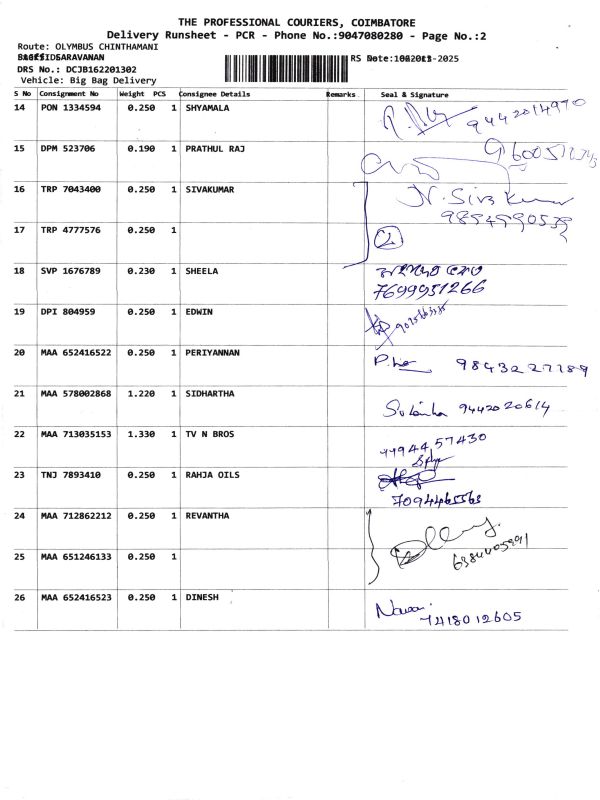 THE PROFESSIONAL COURIERS, COIMBATORE
Delivery Runsheet - PCR - Phone No.:9047080280 - Page No.:2
Route: OLYMBUS CHINTHAMANI
SARAVANAN
DRS No.: DCJB162201302
Vehicle: Big Bag Delivery
S No Consignment No Weight PCS Consignee Details Remarks Seal & Signature
14 PON 1334594 0.250 1 SHYAMALA 9442014970
15 DPM 523706 0.190 1 PRATHUL RAJ
16 TRP 7043400 0.250 1 SIVAKUMAR N. Siva Kumar
17 TRP 4777576 0.250 1 2
18 SVP 1676789 0.230 1 SHEELA
7699951266
19 DPI 804959 0.250 1 EDWIN
20 MAA 652416522 0.250 1 PERIYANNAN 9843227789
21 MAA 578002868 1.220 1 SIDHARTHA 9442020614
22 MAA 713035153 1.330 1 TV N BROS
23 TNJ 7893410 0.250 1 RAHJA OILS
7094465563
24 MAA 712862212 0.250 1 REVANTHA
25 MAA 651246133 0.250 1
26 MAA 652416523 0.250 1 DINESH
7418012605